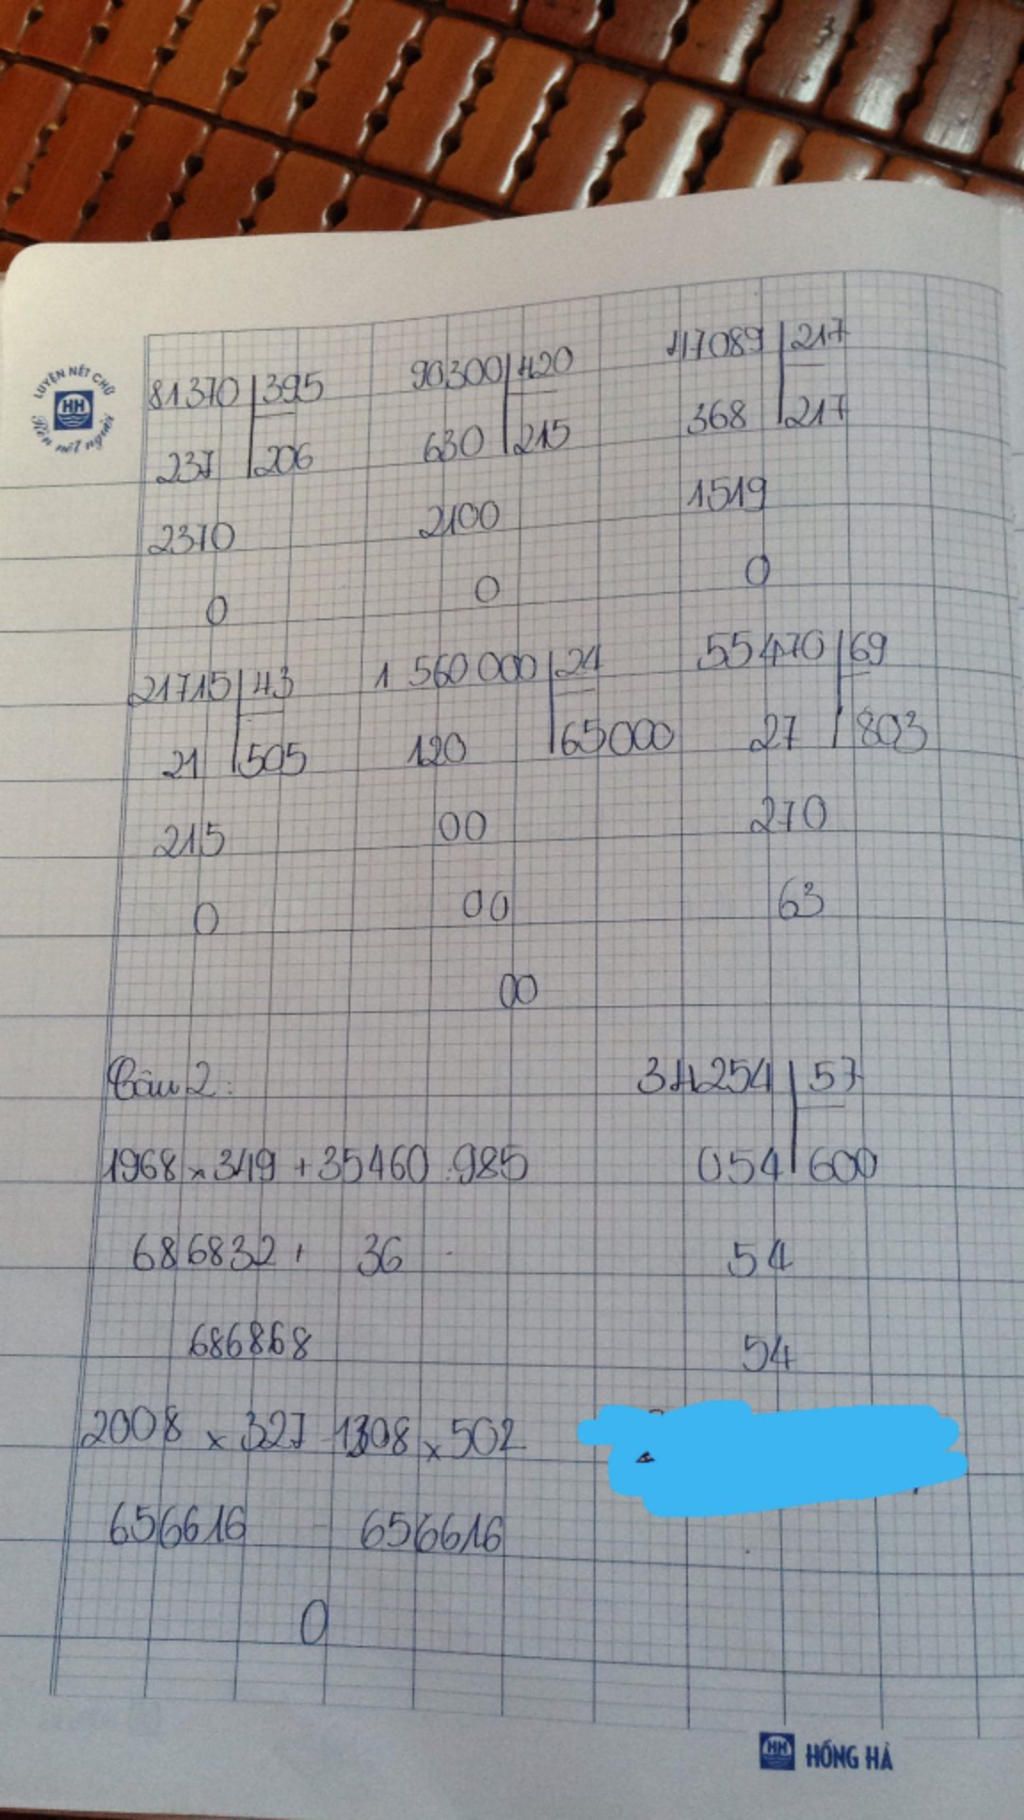 LUYỆN NÉT CHỮ
HH
Rèn nết người
81370 395
237 206
2370
0
90300 420
630 215
2100
0
47089 217
368 217
1519
0
21715 43
21 505
215
0
1 560 000 24
120 65000
00
00
00
55470 69
27 803
270
63
Câu 2:
1968 x 349 + 35460 : 985
686832 + 36
686868
34254 57
054 600
54
54
2008 x 327 - 1308 x 502
656616 - 656616
0
HH HỒNG HÀ